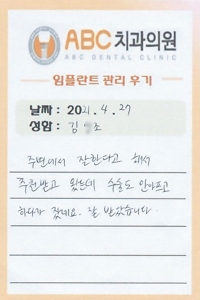 ABC 치과의원
ABC DENTAL CLINIC
임플란트 관리 후기
날짜 : 2021. 4. 27
성함 : 김 조
주변에서 잘한다고 해서
추천받고 왔는데 수술도 안아프고
하다가 잤네요. 잘 받았습니다.